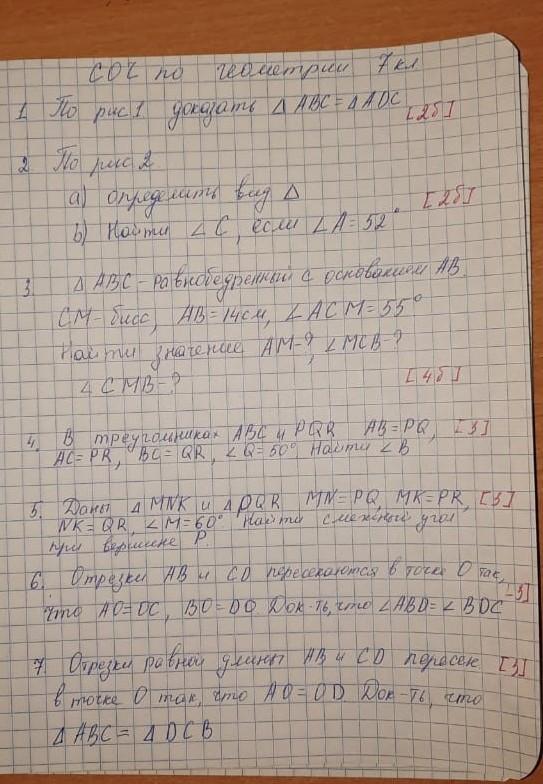 СОЧ по геометрии 7 кл
1. По рис 1. доказать △ ABC = △ ADC [2б]
2. По рис 2
a) определить вид △ [2б]
b) Найти ∠C, если ∠A = 52°
3. △ ABC - равнобедренный с основанием AB.
CM - бисс, AB = 14 см, ∠ACM = 55°
Найти значение AM-?, ∠MCB-?
∠CMB-? [4б]
4. В треугольниках ABC и PQR AB = PQ, [3]
AC = PR, BC = QR, ∠Q = 50° Найти ∠B
5. Даны △ MNK и △ PQR MN = PQ, MK = PR, [3]
NK = QR, ∠M = 60° Найти смежный угол
при вершине P.
6. Отрезки AB и CD пересекаются в точке O так,
что AO = OC, BO = DO. Док-ть, что ∠ABD = ∠BDC -3]
7. Отрезки равной длины AB и CD пересек. [3]
в точке O так, что AO = OD. Док-ть, что
△ ABC = △ DCB